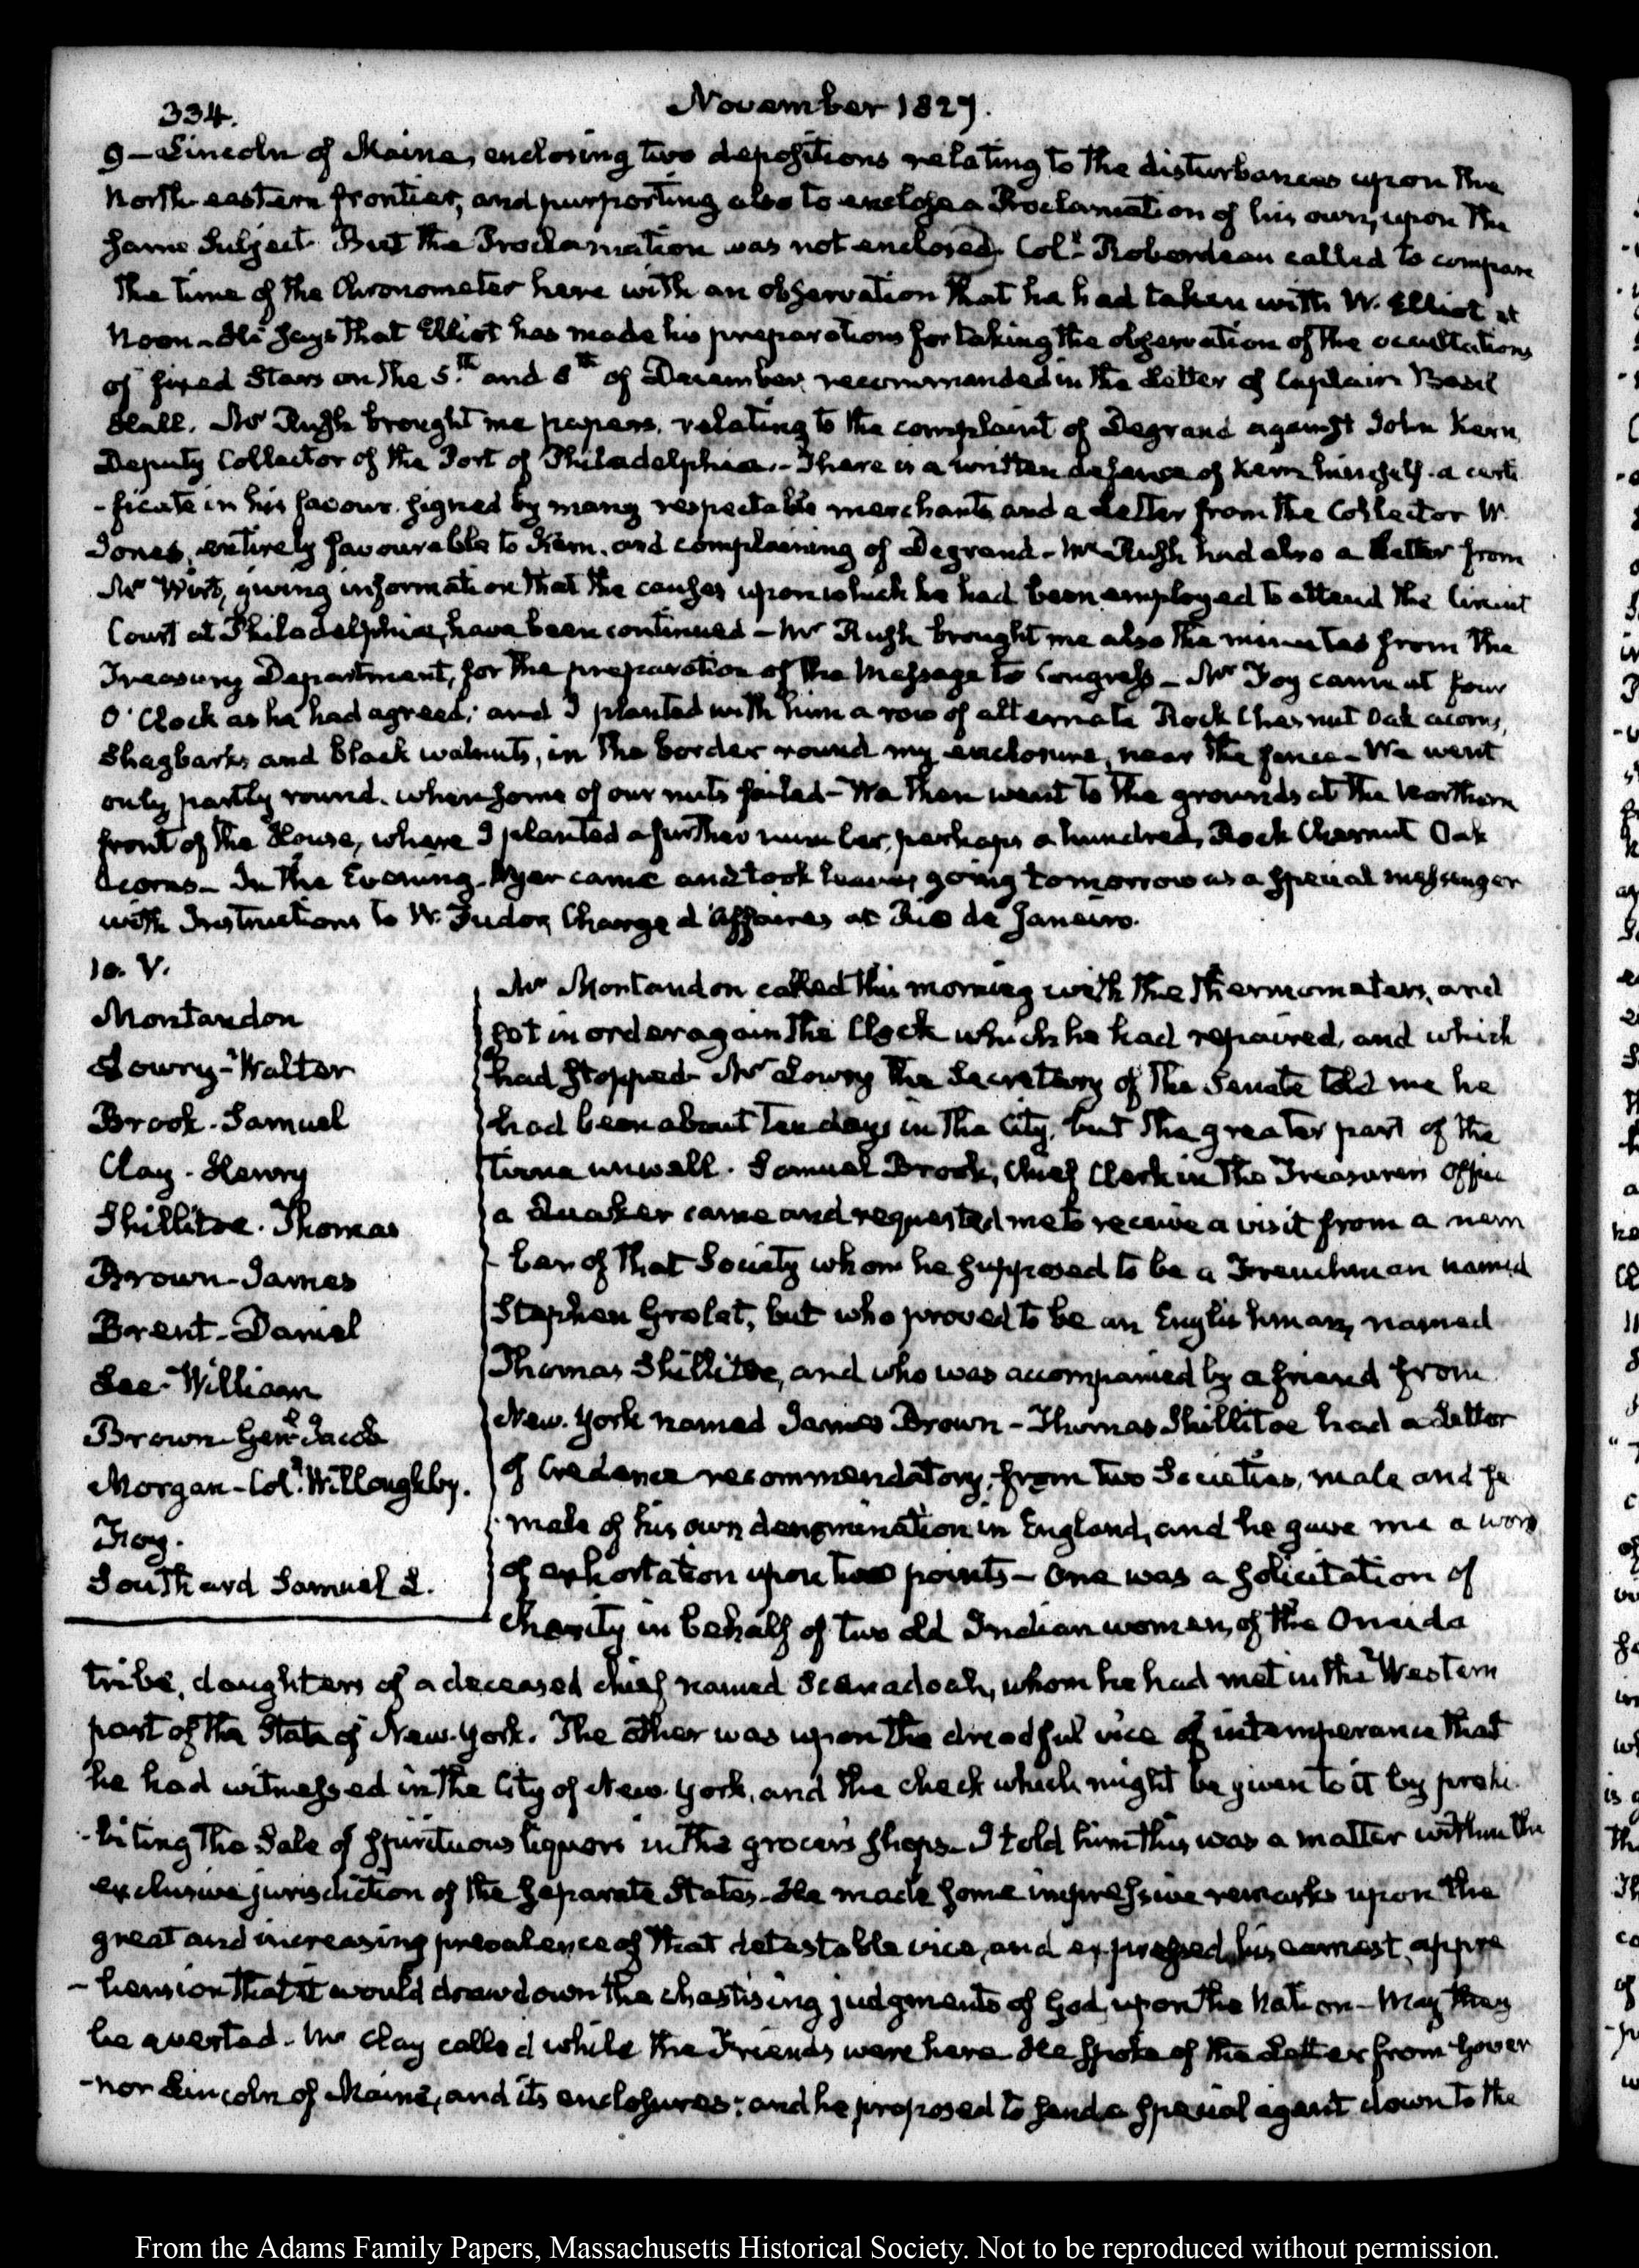 334.
November 1827.
9 – Lincoln of Maine, enclosing two depositions relating to the disturbances upon the
North eastern frontier, and purporting also to enclose a Proclamation of his own, upon the
same subject. But the Proclamation was not enclosed. Coll. Roberdeau called to compare
the time of the Chronometer here with an observation that he had taken with W. Elliot at
Noon – He says that Elliot has made his preparations for taking the observation of the occultations
of fixed Stars on the 5th and 6th of December, recommended in the Letter of Captain Basil
Hall. Mr Rush brought me papers, relating to the complaint of Degrand against John Kern
Deputy Collector of the Port of Philadelphia. – There is a written defence of Kern himself – a certi
-ficate in his favour signed by many respectable merchants and a Letter from the Collector W.
Jones, entirely favourable to Kern, and complaining of Degrand – Mr Rush had also a Letter from
Mr Wirt, giving information that the causes upon which he had been employed to attend the Circuit
Court at Philadelphia, have been continued – Mr Rush brought me also the minutes from the
Treasury Department, for the preparation of the Message to Congress – Mr Foy came at four
O'Clock as he had agreed; and I planted with him a row of alternate Rock Chesnut Oak acorns,
Shagbarks and black walnuts, in the border round my enclosure, near the fence – We went
only partly round, when some of our nuts failed – We then went to the grounds at the Northern
front of the House, where I planted a further number, perhaps a hundred, Rock Chesnut Oak
Acorns – In the Evening Ayer came and took leave, going tomorrow as a special messenger
with Instructions to W. Tudor, Chargé d'Affaires at Rio de Janeiro.
10. V.
Montandon
Lowry – Walter
Brook – Samuel
Clay – Henry
Shillitoe – Thomas
Brown – James
Brent – Daniel
Lee – William
Brown – Genl Jacob
Morgan – Coll. Willoughby.
Foy.
Southard Samuel L.
Mr Montandon called this morning with the thermometers, and
set in order again the Clock which he had repaired, and which
had stopped – Mr Lowry the Secretary of the Senate told me he
had been about ten days in the City, but the greater part of the
time unwell. Samuel Brook, Chief Clerk in the Treasurer's Office
a Quaker came and requested me to receive a visit from a mem
-ber of that Society whom he supposed to be a Frenchman named
Stephen Grolet, but who proved to be an Englishman, named
Thomas Shillitoe, and who was accompanied by a friend from
New York named James Brown – Thomas Shillitoe had a Letter
of Credence recommendatory, from two Societies, male and fe
-male of his own denomination in England, and he gave me a word
of exhortation upon two points – One was a solicitation of
Charity in behalf of two old Indian women, of the Oneida
tribe, daughters of a deceased chief named Scanadoah, whom he had met in the Western
part of the State of New-York. The other was upon the dreadful vice of intemperance that
he had witnessed in the City of New-York, and the check which might be given to it by prohi
-biting the Sale of Spirituous liquors in the grocer's shops – I told him this was a matter within the
exclusive jurisdiction of the separate States – He made some impressive remarks upon the
great and increasing prevalence of that detestable vice, and expressed his earnest appre
-hension that it would draw down the chastising judgments of God, upon the Nation – May they
be averted – Mr Clay called while the Friends were here – He spoke of the Letter from Gover
-nor Lincoln of Maine, and its enclosures; and he proposed to send a special agent down to the
From the Adams Family Papers, Massachusetts Historical Society. Not to be reproduced without permission.